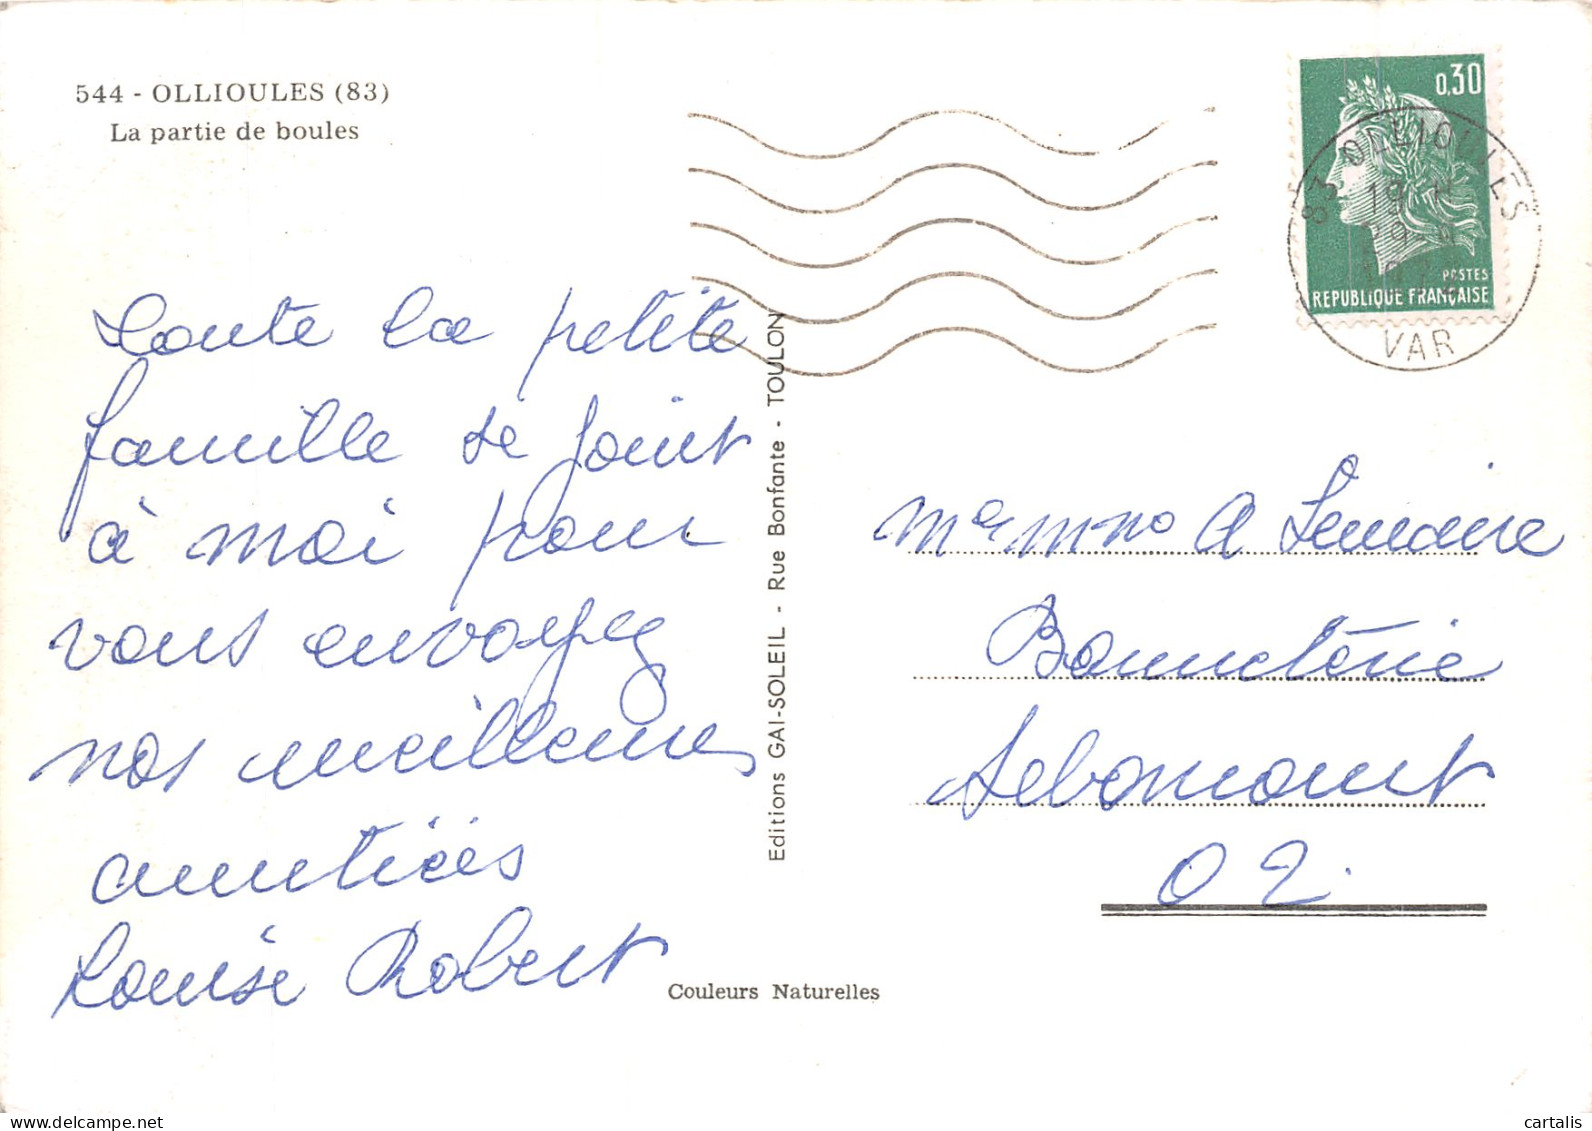 544 - OLLIOULES (83)
La partie de boules
Toute la petite
famille se joint
à moi pour
vous envoyez
nos meilleures
amitiés
Louise Robert
Editions GAI-SOLEIL - Rue Bonfante - TOULON
Couleurs Naturelles
0,30
POSTES
REPUBLIQUE FRANÇAISE
83 OLLIOULES
19 H
VAR
Mr Mme A Lemaire
Bonneterie
Seboncourt
02.
www.cartalis.com
cartalis